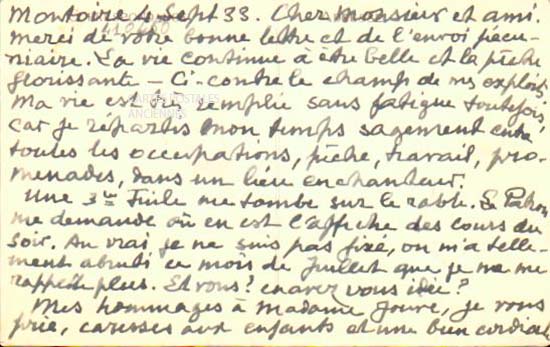 Montoire 4 Sept 33. Cher Monsieur et ami.
merci de votre bonne lettre et de l'envoi pécu-
niaire. La vie continue à être belle et la pêche
florissante - Ci-contre le champ de mes exploits
Ma vie est très remplie sans fatigue toutefois
CARTES POSTALES
ANCIENNES
car je répartis mon temps sagement entre
toutes les occupations, pêche, travail, pro-
menades, dans un lieu enchanteur.
Une 3e Tuile me tombe sur le rable. Le Patron
me demande où en est l'affiche des cours du
soir. Au vrai je ne suis pas fixé, on m'a telle-
ment abruti ce mois de Juillet que je ne me
rappelle plus. Et vous? en avez vous idée?
Mes hommages à Madame Jouve, je vous
prie, caresses aux enfants et une bien cordial